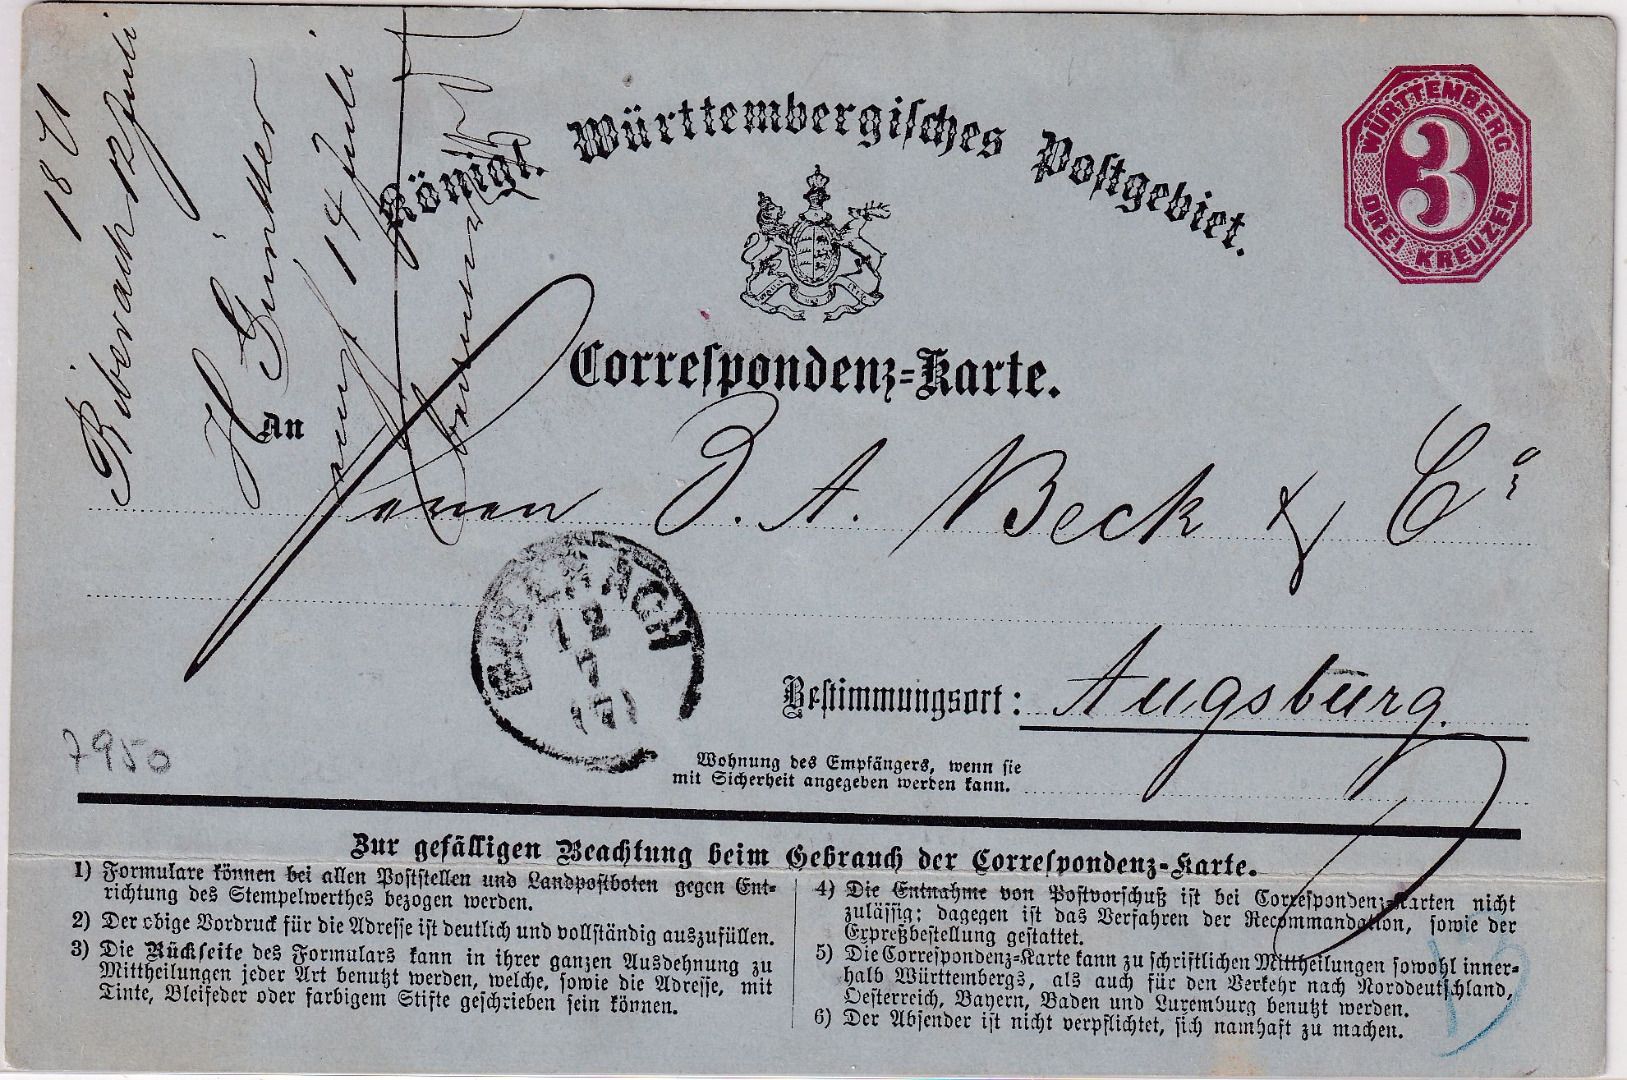 1871
Biberach 12 Juli
H Günther
14 Juli
Königl. Württembergisches Postgebiet.
WÜRTTEMBERG
3
DREI KREUZER
Correspondenz-Karte.
An
Herren J. A. Beck & Co
BIBERACH
12
7
71
Bestimmungsort: Augsburg.
Wohnung des Empfängers, wenn sie
mit Sicherheit angegeben werden kann.
7950
Zur gefälligen Beachtung beim Gebrauch der Correspondenz-Karte.
1) Formulare können bei allen Poststellen und Landpostboten gegen Ent-
richtung des Stempelwerthes bezogen werden.
2) Der obige Vordruck für die Adresse ist deutlich und vollständig auszufüllen.
3) Die Rückseite des Formulars kann in ihrer ganzen Ausdehnung zu
Mittheilungen jeder Art benutzt werden, welche, sowie die Adresse, mit
Tinte, Bleifeder oder farbigem Stifte geschrieben sein können.
4) Die Entnahme von Postvorschuß ist bei Correspondenz-Karten nicht
zulässig; dagegen ist das Verfahren der Recommandation, sowie der
Expreßbestellung gestattet.
5) Die Correspondenz-Karte kann zu schriftlichen Mittheilungen sowohl inner-
halb Württembergs, als auch für den Verkehr nach Norddeutschland,
Oesterreich, Bayern, Baden und Luxemburg benutzt werden.
6) Der Absender ist nicht verpflichtet, sich namhaft zu machen.